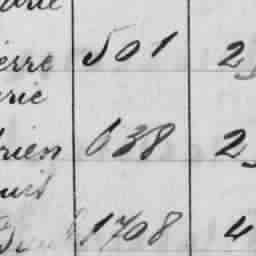 erre 501 2
rie
rien 638 2
uis
1708 4